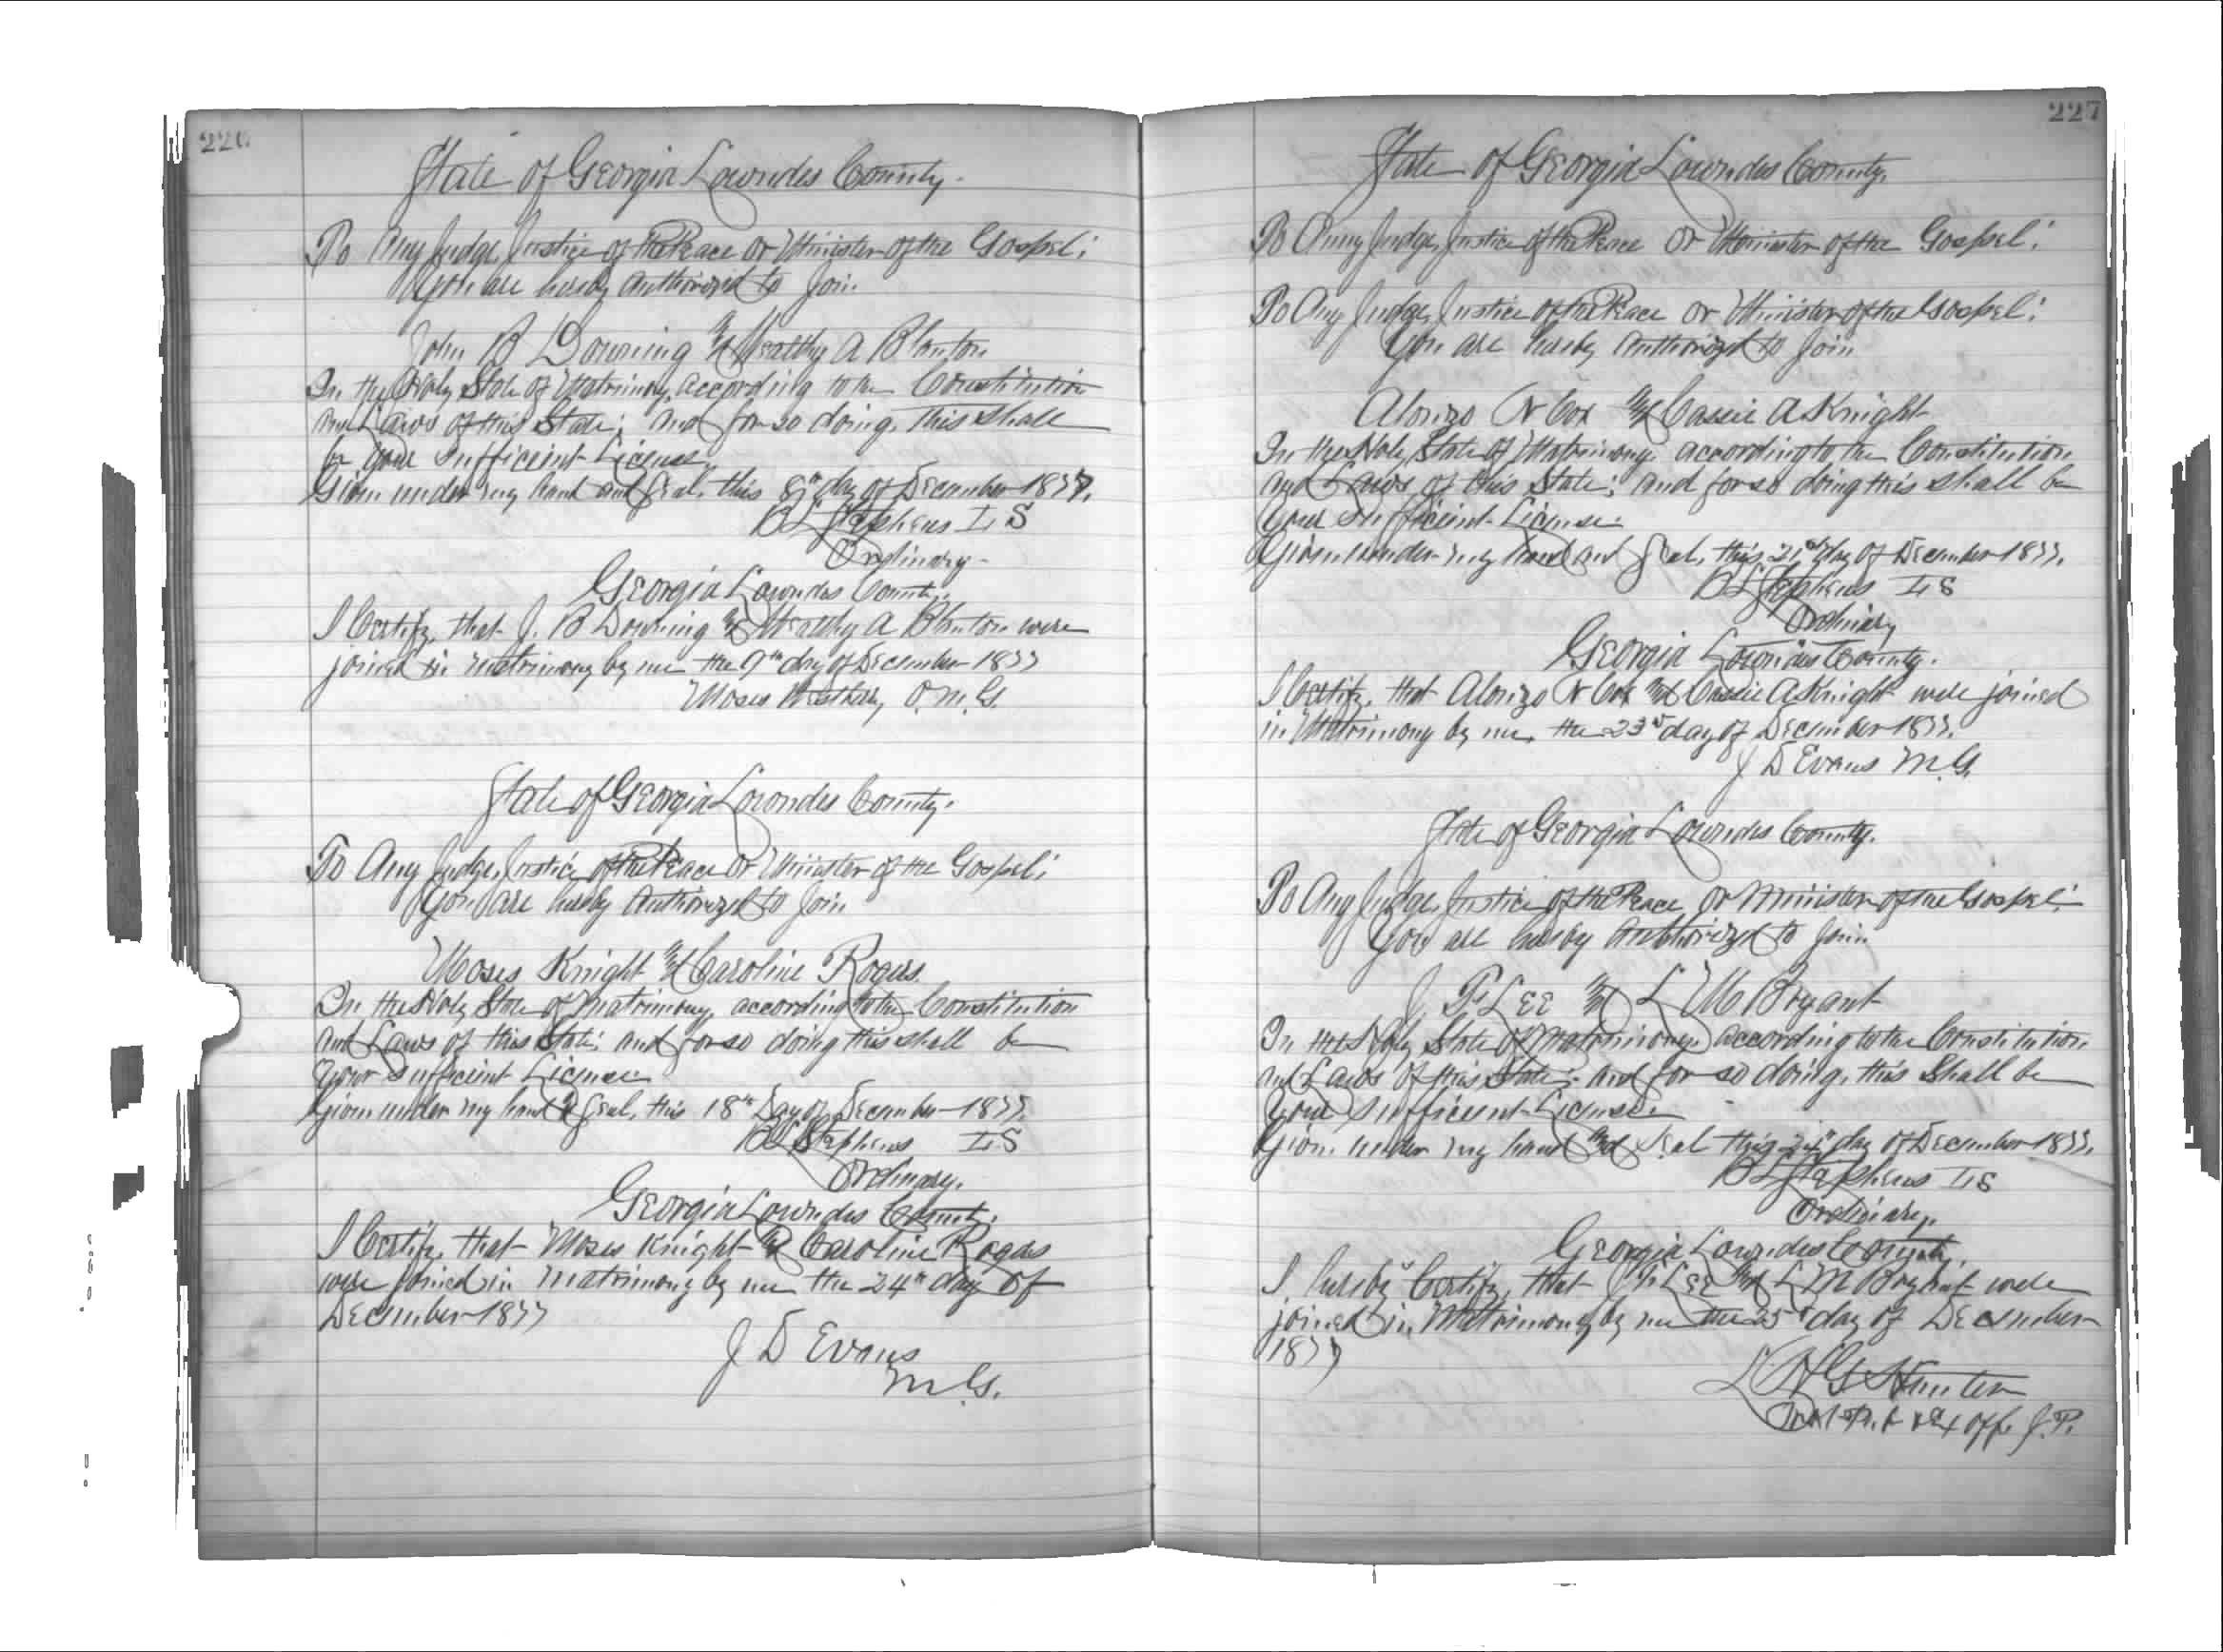 226
State of Georgia Lowndes County.
To Any Judge, Justice of the Peace or Minister of the Gospel:
You are hereby Authorized to Join
John B Downing and Wealthy A Blanton
In the Holy State of Matrimony, according to the Constitution
and Laws of this State; and for so doing, this shall
be your sufficient License
Given under my hand and seal, this 8th day of December 1877.
B L Stephens L S
Ordinary
Georgia Lowndes County.
I Certify, that J. B Downing and Wealthy A Blanton were
joined in matrimony by me the 9th day of December 1877
Moses O. M. G.
State of Georgia Lowndes County.
To Any Judge, Justice of the Peace or Minister of the Gospel:
You are hereby Authorized to Join
Moses Knight and Caroline Rogers.
In the Holy State of Matrimony, according to the Constitution
and Laws of this State; and for so doing this shall be
your sufficient License
Given under my hand & seal, this 18th Day of December 1877.
B L Stephens L S
Ordinary.
Georgia Lowndes County.
I Certify, that Moses Knight and Caroline Rogers
were joined in matrimony by me the 24th day of
December 1877
J D Evans
M. G.
227
State of Georgia Lowndes County.
To Any Judge, Justice of the Peace or Minister of the Gospel:
To Any Judge, Justice of the Peace or Minister of the Gospel:
You are hereby Authorized to Join
Alonzo N Cox and Cassie A Knight
In the Holy State of Matrimony according to the Constitution
and Laws of this State; and for so doing this shall be
your sufficient License.
Given under my hand and seal, this 21st day of December 1877.
B L Stephens L S
Ordinary
Georgia Lowndes County.
I Certify, that Alonzo N Cox and Cassie A Knight were joined
in Matrimony by me, the 23d day of December 1877.
J D Evans M. G.
State of Georgia Lowndes County.
To Any Judge, Justice of the Peace or Minister of the Gospel:
You are hereby Authorized to Join
J. P. Lee and L M Bryant
In the Holy State of Matrimony, according to the Constitution
and Laws of this State; and for so doing, this shall be
your sufficient License.
Given under my hand and seal this 24th day of December 1877.
B L Stephens L S
Ordinary.
Georgia Lowndes County.
I, hereby Certify, that J. P. Lee and L M Bryant were
joined in Matrimony by me the 25th day of December
1877
Hunter
& Ex Off. J. P.